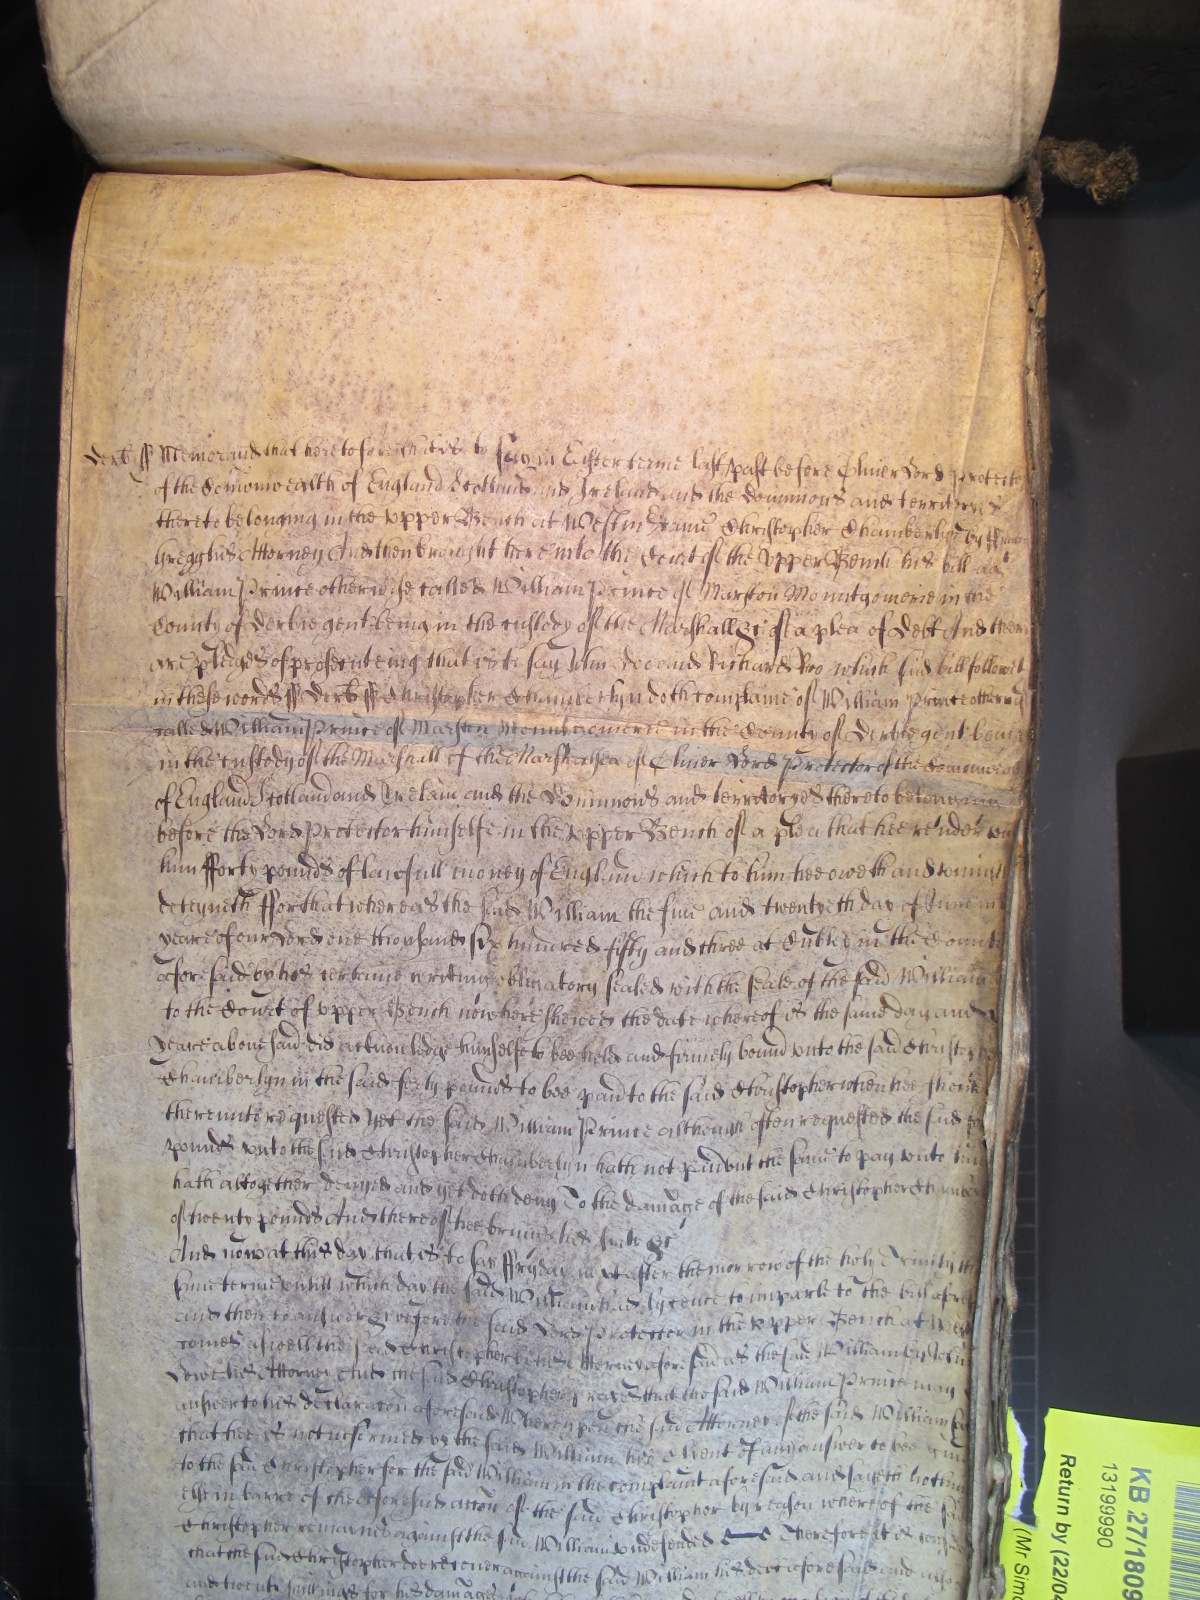 Derb ss Memorand that heretofore that is to say in Easter terme last past before Oliver Lord Protector
of the Comonwealth of England Scotland and Ireland and the Dominions and territoryes
thereto belonging in the Upper Bench at Westm Came Christopher Chamberlyn by
Gregg his Attorney And then brought here into the Court of the Upper Bench his bill ag
William Prince otherwise called William Prince of Marston Mountgomerie in the
County of Derbie gent being in the custody of the Marshall &c of a plea of Debt And there
are pledges of prosecuteing that is to say John Doo and Richard Roo which said bill followeth
in these words ss Derb ss Christopher Chamberlyn doth complaine of William Prince otherwise
called William Prince of Marston Mountgomerie in the County of Derbie gent being
in the custody of the Marshall of the Marshalsea of Oliver Lord Protector of the Comonwea
of England Scotland and Ireland and the Dominions and territoryes thereto belonging
before the Lord Protector himselfe in the Upper Bench of a plea that hee render unto
him fforty pounds of lawfull money of England which to him hee oweth and uniustly
deteyneth ffor that whereas the said William the five and twentyeth day of June in
yeare of our Lord one thousand six hundred fifty and three at Dubley in the County
aforesaid by his certaine writing obligatory sealed with the seale of the said William
to the Court of Upper Bench now here shewed the date whereof is the same day and
yeare abovesaid did acknowledge himselfe to bee held and firmely bound unto the said Christopher
Chamberlyn in the said forty pounds to bee paid to the said Christopher when hee should
thereunto requested Yet the said William Prince although often requested the said
pounds unto the said Christopher Chamberlyn hath not paid but the same to pay unto him
hath altogether denyed and yet doth deny To the damage of the said Christopher Chamber
of twenty pounds And thereof hee brings his suite &c
And now at this day that is to say ffryday next after the morrow of the holy Trinity th
same terme untill which day the said William had lycence to imparle to the bill afore
and then to answer &c before the said Lord Protector in the Upper Bench at West
comes aswell the said Christopher by his Attorney aforesaid as the said William by
Lowe his Attorney And the said Christopher prayes that the said William Prince may
answer to his declaracon aforesaid Whereupon the said Attorney of the said William
that hee is not informed by the said William his Clyent of any answer to bee given
to the said Christopher for the said William in the complaint aforesaid and sayeth nothing
else in barre of the aforesaid accon of the said Christopher by reason whereof the said
Christopher remaines against the said William undefended Therefore it is
that the said Christopher doe recover against the said William his debt aforesaid and
and twenty shillings for his damages
KB 27/1809
13199990
Return by (22/0
(Mr Simo